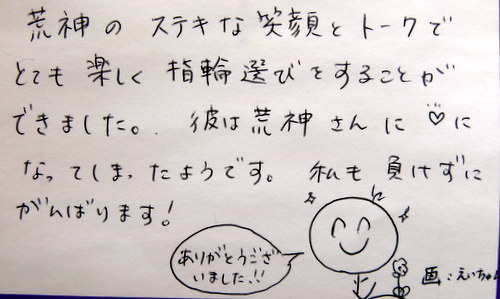 荒神の ステキな笑顔とトークで
とても楽しく指輪選びをすることが
できました。彼は荒神さんに♡に
なってしまったようです。私も負けずに
がんばります!
ありがとうござ
いました!!
画:えいちゃん